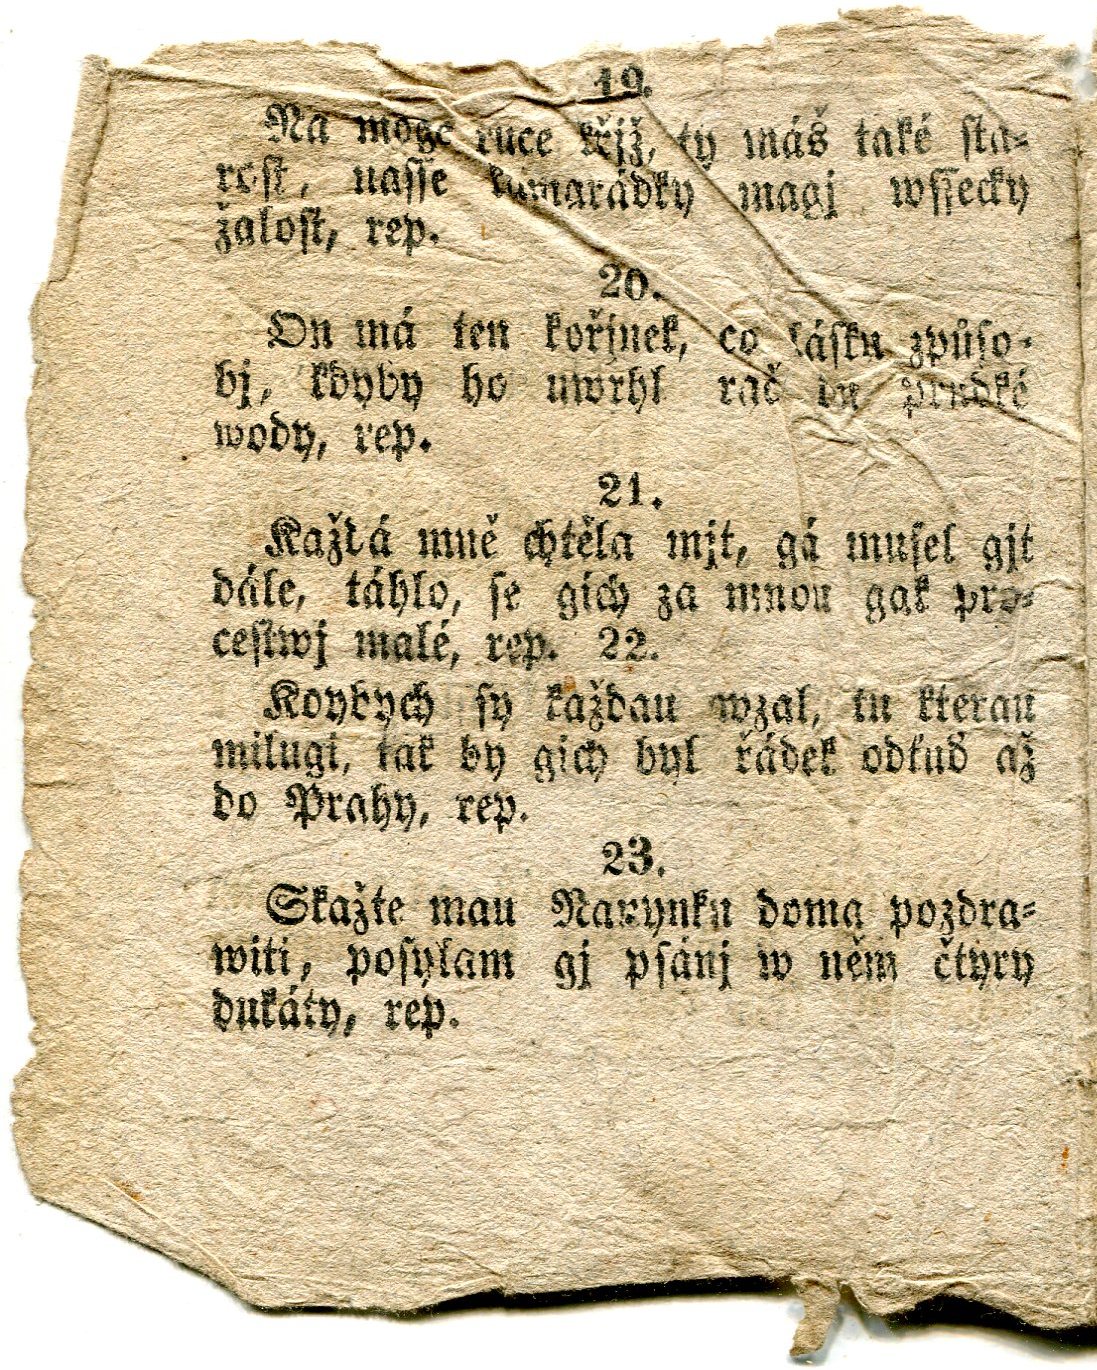 19.
Na moge ruce křjž, ty máš také sta-
rost, nasse kamarádky magj wssecky
žalost, rep.
20.
On má ten kořjnek, co lásku způso-
bj, kdyby ho uwrhl rač tu prudké
wody, rep.
21.
Každá mně chtěla mjt, gá musel gjt
dále, táhlo, se gich za mnou gak pro-
cestwj malé, rep. 22.
Koybych sy každau wzal, tu kterau
milugi, tak by gich byl řádek odtuď až
do Prahy, rep.
23.
Skažte mau Narynku doma pozdra-
witi, posylam gj psánj w něm čtyry
dukáty, rep.